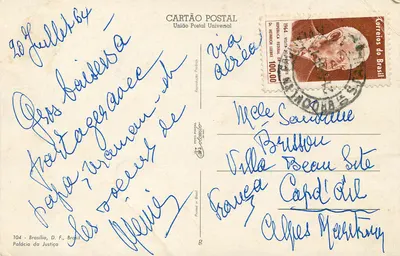 CARTÃO POSTAL
União Postal Universal
20 Juillet 64
Via
aérea
Gros baisers à
partager avec
papa, maman et
les
de
Mémé
Correios do Brasil
1964
100,00
BRASIL
Mlle
Brisson
Villa Beau Site
Cap d'Ail
Alpes Maritimes
França
104 - Brasília, D. F., Brasil
Palácio da Justiça